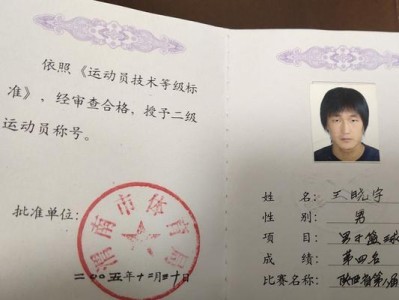 依照《运动员技术等级标
准》，经审查合格，授予二级
运动员称号。
批准单位：
渭南市体育局
二〇〇五年十二月二十日
姓 名：王晓宇
性 别：男
项 目：男子篮球
成 绩：第四名
比赛名称：陕西省第